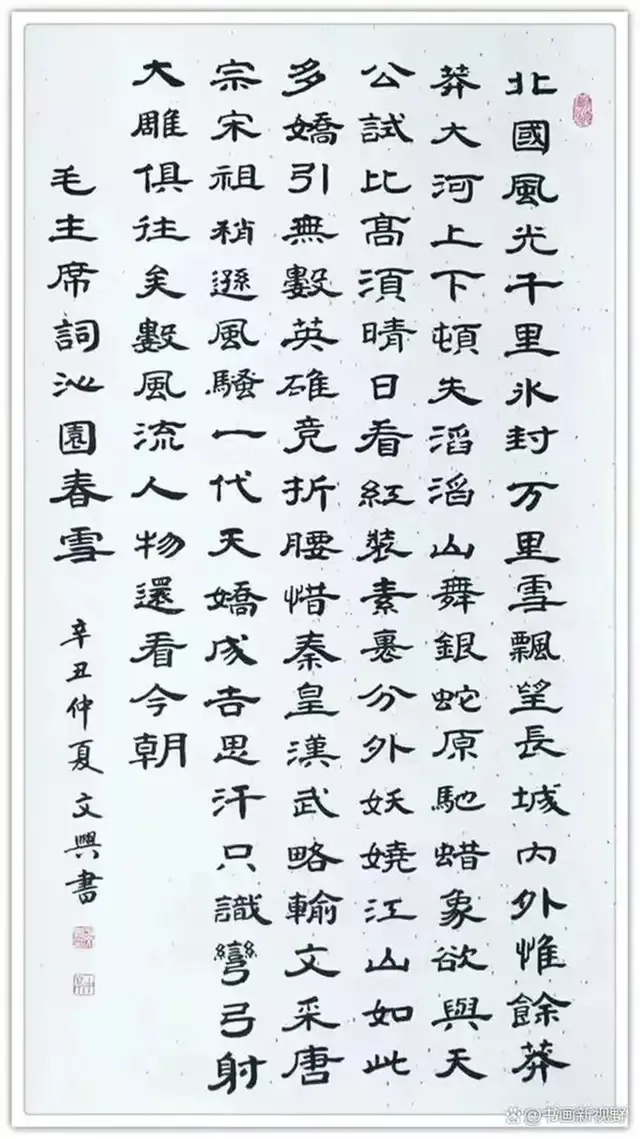 北國風光千里氷封万里雪飄望長城内外惟餘莽
莽大河上下頓失滔滔山舞銀蛇原馳蜡象欲與天
公試比髙湏晴日看紅裝素裹分外妖嬈江山如此
多嬌引無數英雄竞折腰惜秦皇漢武略輸文采唐
宗宋祖稍遜風騷一代天嬌成吉思汗只識彎弓射
大雕俱往矣數風流人物還看今朝
毛主席詞沁園春雪
辛丑仲夏文興書
@书画新视野